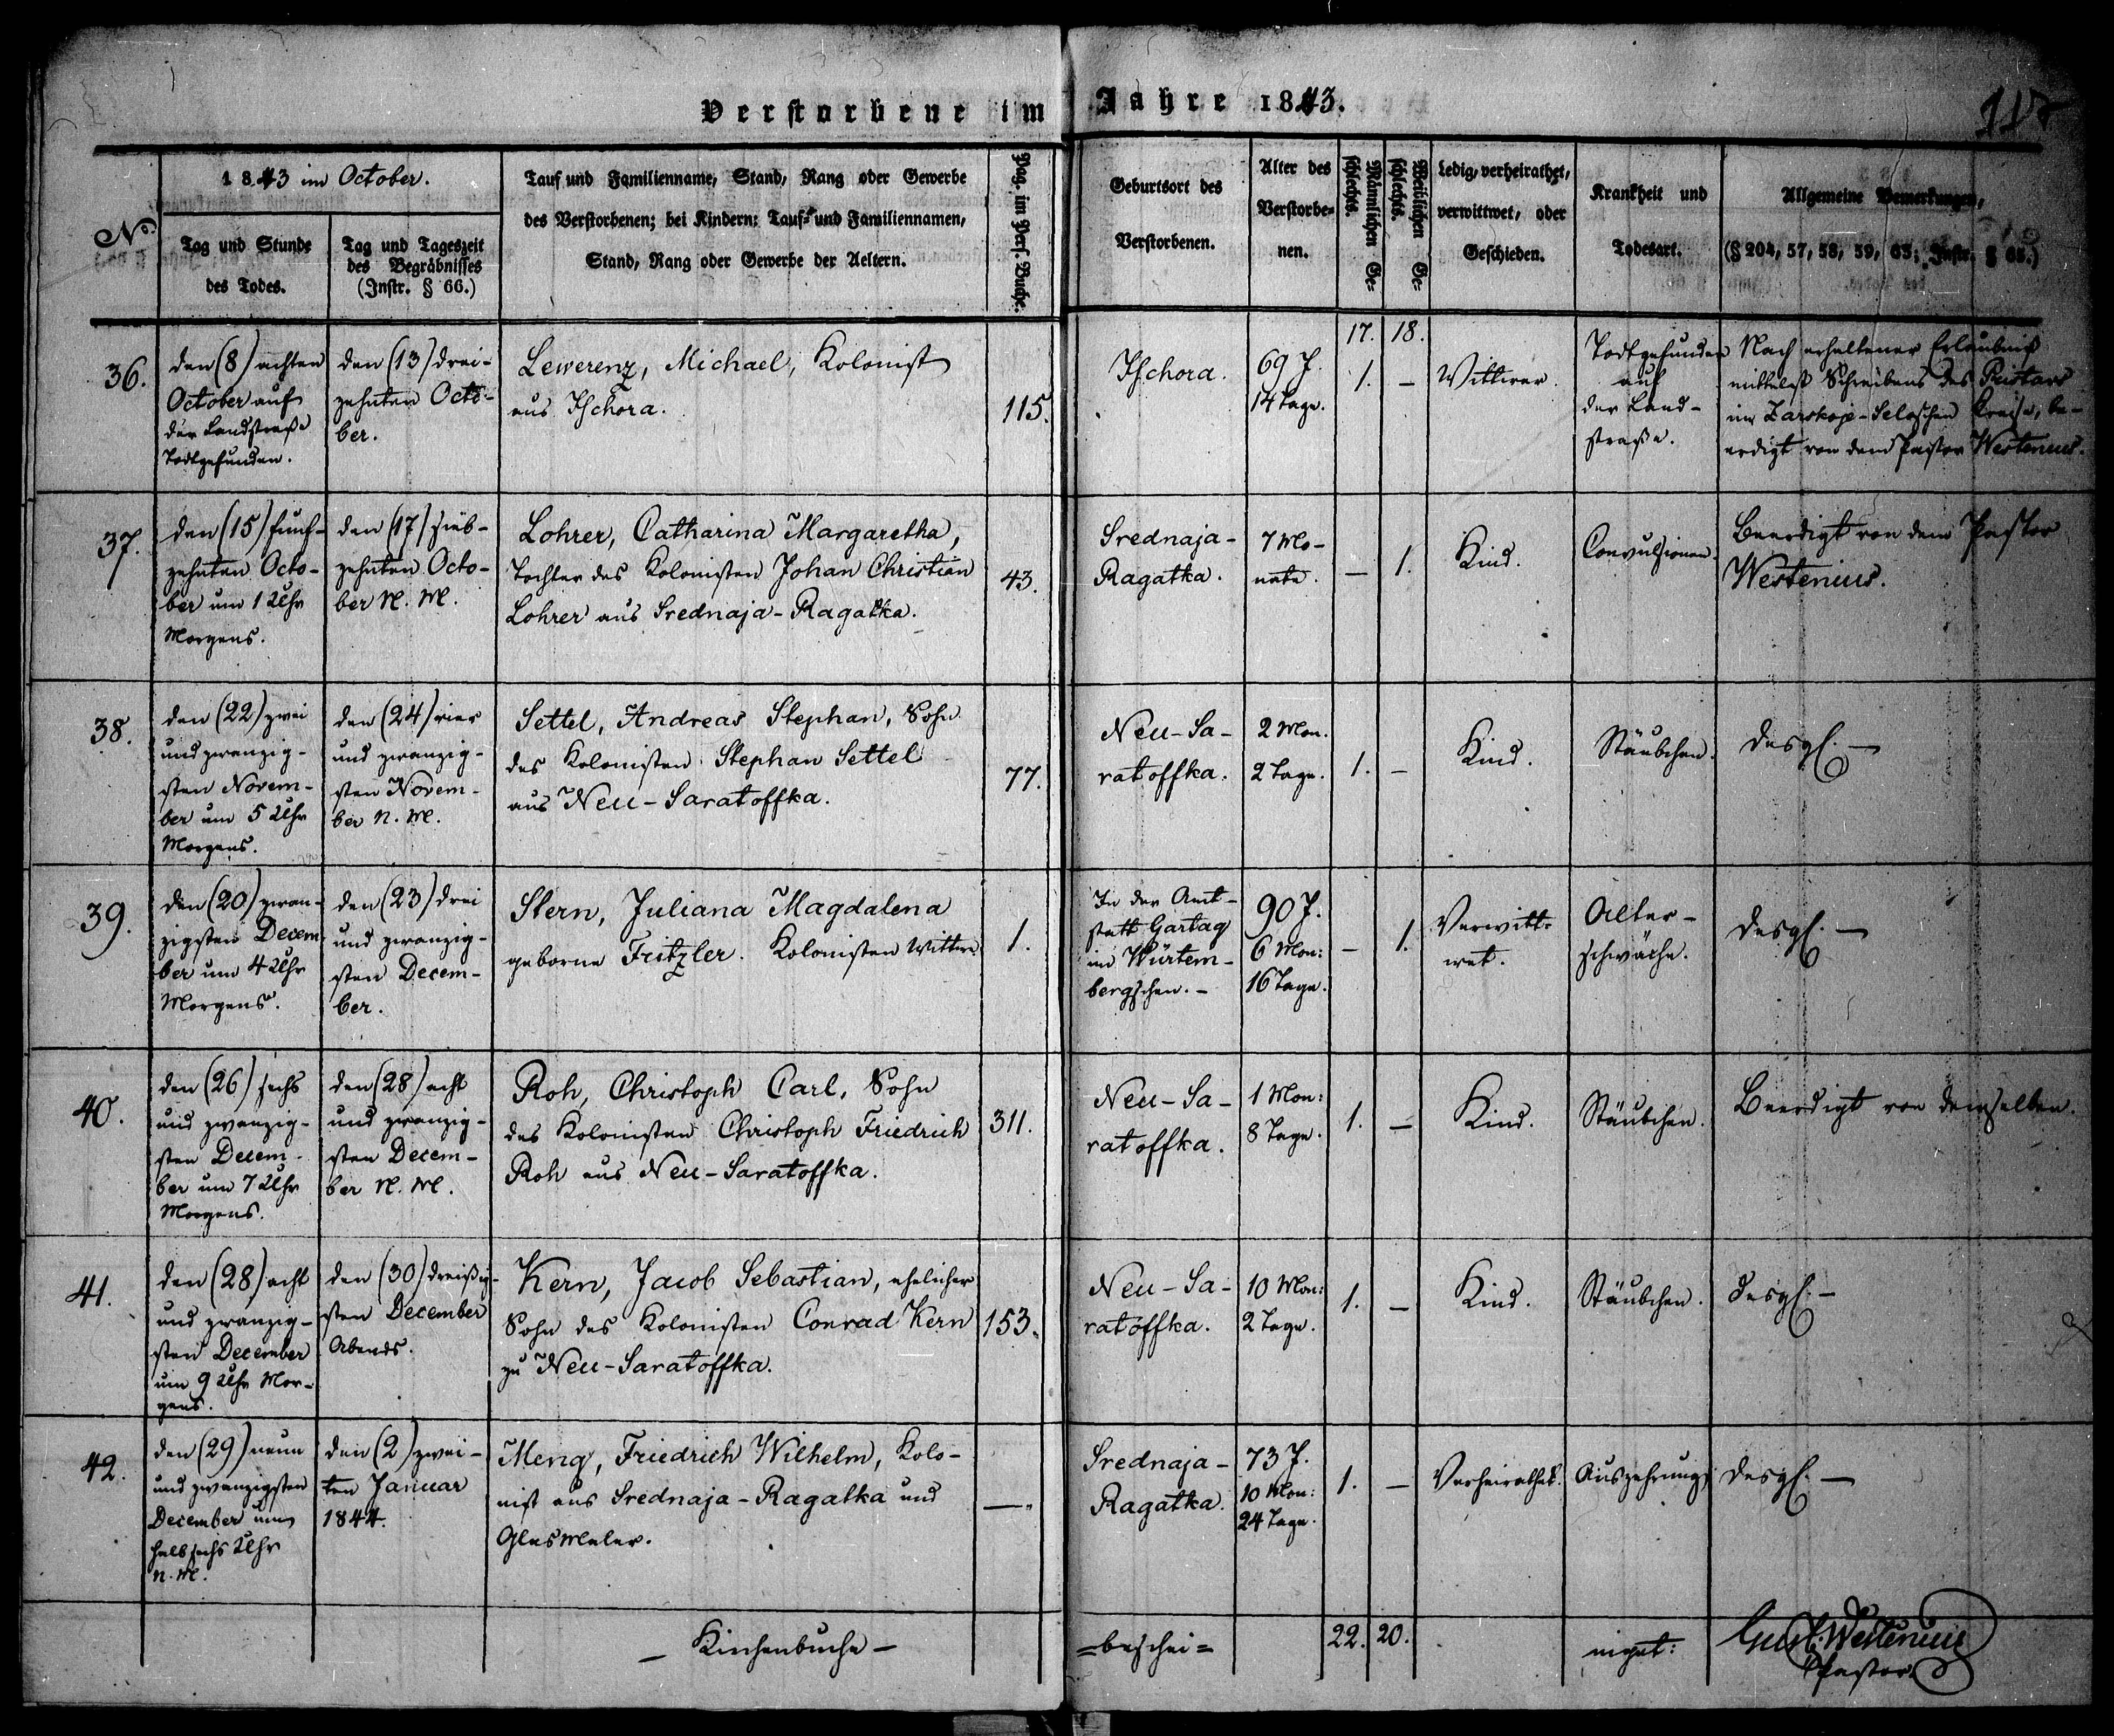 Verstorbene im Jahre 1843.
117
No.
1843 im October.
Tag und Stunde
des Todes.
Tag und Tageszeit
des Begräbnisses
(Instr. § 66.)
Tauf und Familienname, Stand, Rang oder Gewerbe
des Verstorbenen; bei Kindern: Tauf= und Familiennamen,
Stand, Rang oder Gewerbe der Aeltern.
Pag. im Pers. Buche.
Geburtsort des
Verstorbenen.
Alter des
Verstorbe=
nen.
Männlichen Ge=
schlechts.
Weiblichen Ge=
schlechts.
Ledig, verheirathet,
verwittwet, oder
Geschieden.
Krankheit und
Todesart.
Allgemeine Bemerkungen,
(§ 204, 57, 58, 59, 63; Instr. § 68.)
17. 18.
36.
den (8) achten
October auf
der Landstraße
Todtgefunden.
den (13) drei-
zehnten Octo-
ber.
Lewerenz, Michael, Kolonist
aus Ischora.
115.
Ischora.
69 J.
14 Tage.
1. –
Wittwer.
Todtgefunden
auf
der Land-
straße.
Nach erhaltener Erlaubniß
mittelst Schreibens des Pristavs
im Zarskoje-Seloschen Kreise, be-
erdigt von dem Pastor Westenius.
37.
den (15) funf-
zehnten Octo-
ber um 1 Uhr
Morgens.
den (17) sieb-
zehnten Octo-
ber N. M.
Lohrer, Catharina Margaretha,
Tochter des Kolonisten Johan Christian
Lohrer aus Srednaja-Ragatka.
43.
Srednaja-
Ragatka.
7 Mo-
nate.
– 1.
Kind.
Convulsionen.
Beerdigt von dem Pastor
Westenius.
38.
den (22) zwei
und zwanzig-
sten Novem-
ber um 5 Uhr
Morgens.
den (24) vier
und zwanzig-
sten Novem-
ber N. M.
Settel, Andreas Stephan, Sohn
des Kolonisten Stephan Settel
aus Neu-Saratoffka.
77.
Neu-Sa-
ratoffka.
2 Mon.
2 Tage.
1. –
Kind.
Stäubchen.
desgl. –
39.
den (20) zwan-
zigsten Decem
ber um 4 Uhr
Morgens.
den (23) drei
und zwanzig-
sten Decem-
ber.
Stern, Juliana Magdalena
geborne Fritzler. Kolonisten Wittwe.
1.
In der Amt-
statt Gartag
im Würtem-
bergschen. –
90 J.
6 Mon:
16 Tage.
– 1.
Verwitt-
wet.
Alter-
schwäche.
desgl. –
40.
den (26) sechs
und zwanzig-
sten Decem-
ber um 7 Uhr
Morgens.
den (28) acht
und zwanzig-
sten Decem-
ber N. M.
Roh, Christoph Carl, Sohn
des Kolonisten Christoph Friedrich
Roh aus Neu-Saratoffka.
311.
Neu-Sa-
ratoffka.
1 Mon:
8 Tage.
1. –
Kind.
Stäubchen.
Beerdigt von demselben.
41.
den (28) acht
und zwanzig-
sten December
um 9 Uhr Mor-
gens.
den (30) dreißig-
sten December
Abends.
Kern, Jacob Sebastian, ehelicher
Sohn des Kolonisten Conrad Kern
zu Neu-Saratoffka.
153.
Neu-Sa-
ratoffka.
10 Mon:
2 Tage.
1. –
Kind.
Stäubchen.
desgl. –
42.
den (29) neun
und zwanzigsten
December um
halb sechs Uhr
N. M.
den (2) zwei-
ten Januar
1844.
Meng, Friedrich Wilhelm, Kolo-
nist aus Srednaja-Ragatka und
Glasmaler.
—.
Srednaja-
Ragatka.
73 J.
10 Mon:
24 Tage.
1. –
Verheirathet.
Auszehrung
desgl. –
– Kirchenbuche – =beschei= 22. 20. niget:
Gust. Westenius
Pastor